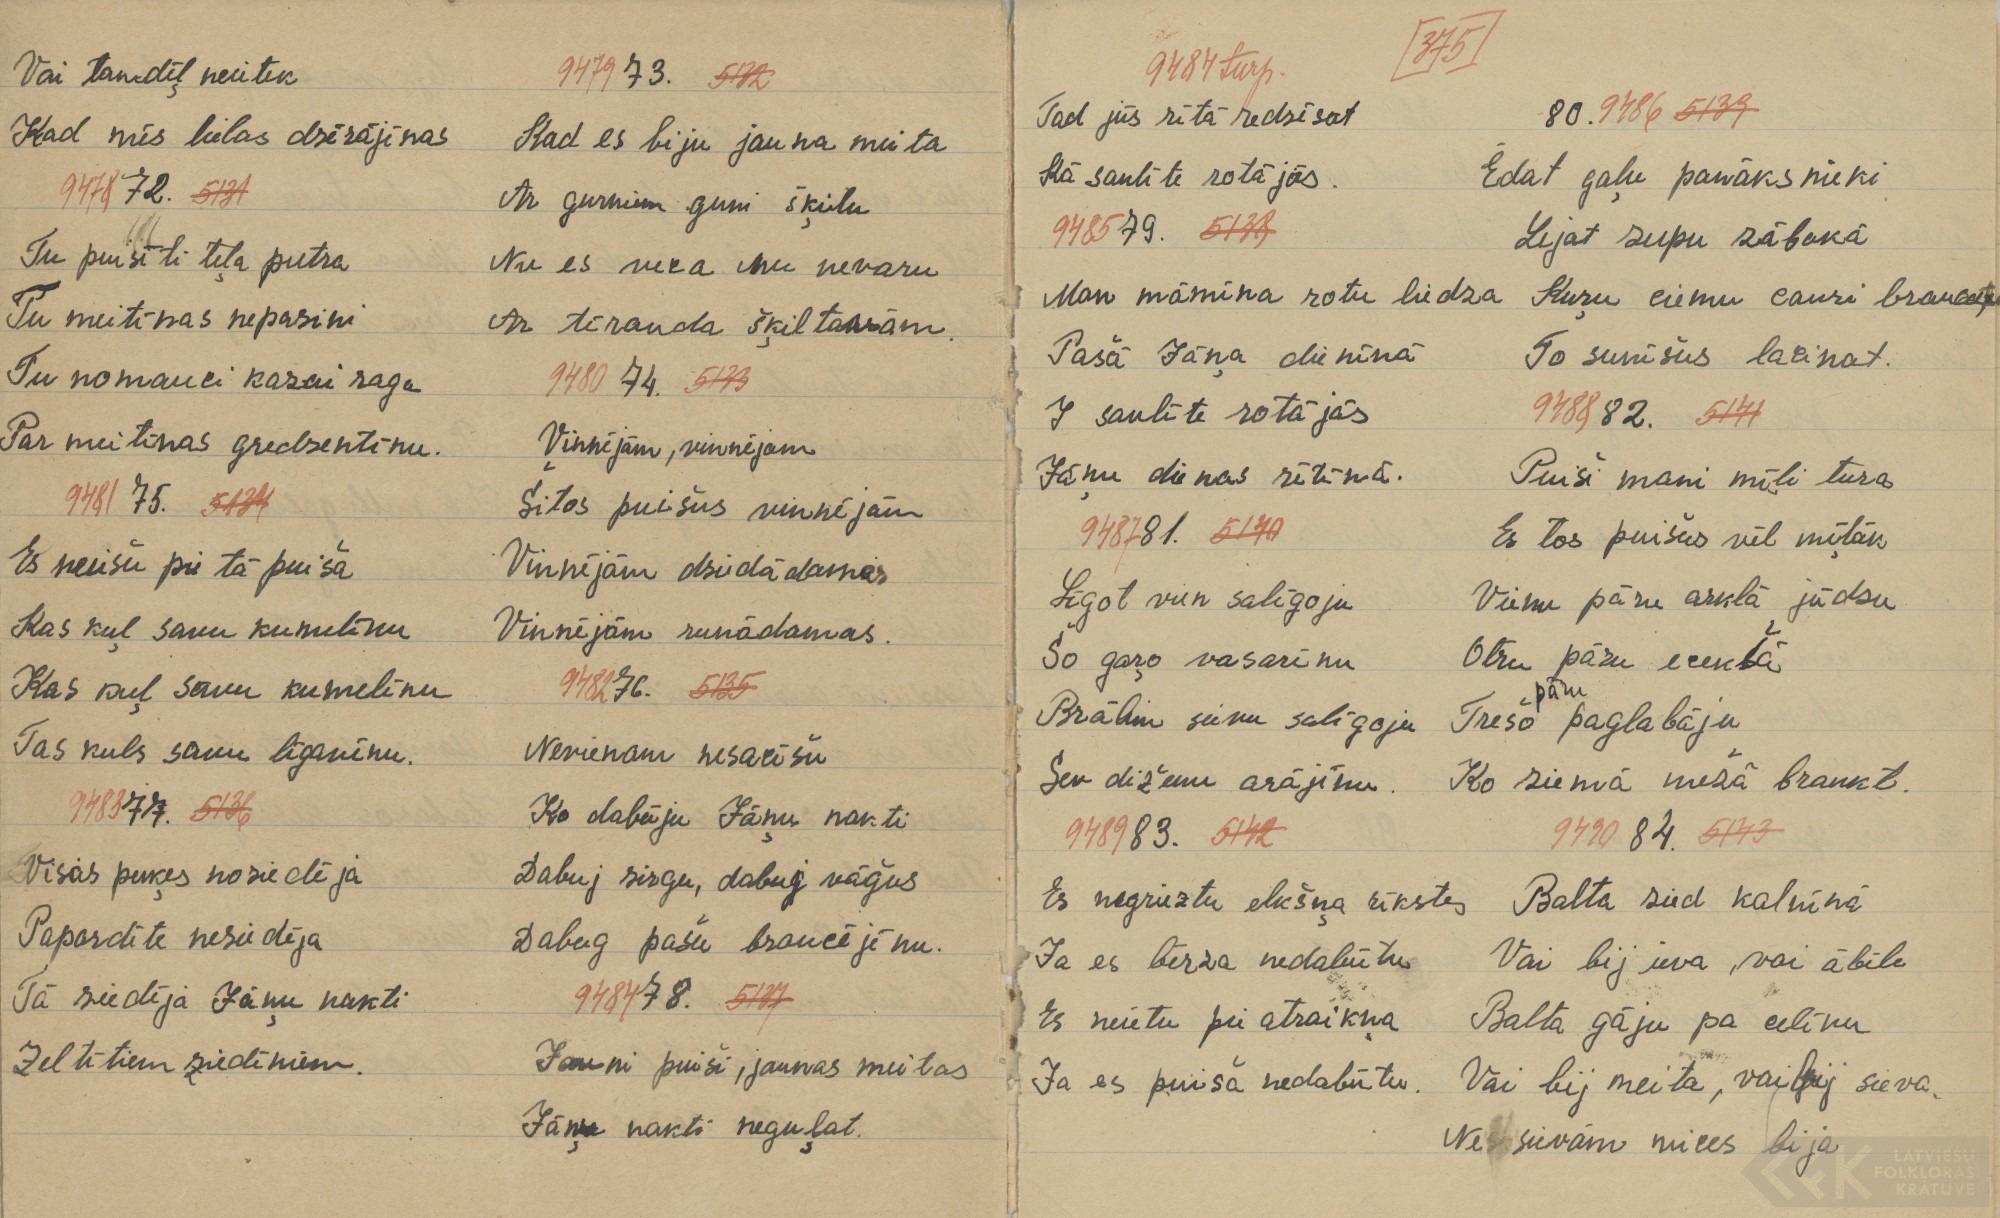 Vai tamdēļ neietek
Kad mēs lielas dzērājiņas
9478 72. 5131
Tu puisīti teļa putra
Tu meitiņas neparini
Tu nomauci kazai ragu
Par meitiņas gredzentiņu.
9481 75. 5134
Es neiešu pie tā puiša
Kas kuļ savu kumeliņu
Kas kuļ savu kumeliņu
Tas kuls savu līgaviņu.
9483 77. 5136
Visas puķes noziedēja
Papardīte neziedēja
Tā ziedēja Jāņu nakti
Zeltītiem ziediņiem.
9479 73. 5132
Kad es biju jauna meita
Ar gurniem guni šķīlu
Nu es veca nu nevaru
Ar tērauda šķiltavām.
9480 74. 5133
Vinnējām, vinnējam
Šitos puišus vinnējām
Vinnējām dziedādamas
Vinnējām runādamas.
9482 76. 5135
Nevienam nesacīšu
Ko dabūju Jāņu nakti
Dabuj zirgu, dabuj vāģus
Dabug pašu braucējiņu.
9484 78. 5137
Jauni puiši, jaunas meitas
Jāņu nakti neguļat.
9484 turp.
[375]
Tad jūs rītā redzēsat
Kā saulīte rotājās.
9485 79. 5138
Man māmiņa rotu liedza
Pašā Jāņa dieniņā
I saulīte rotājās
Jāņu dienas rītiņā.
9487 81. 5140
Līgot vien salīgoju
Šo gaŗo vasariņu
Brālim sievu salīgoju
Sev diženu arājiņu.
9489 83. 5142
Es negrieztu elkšņa rīkstes
Ja es bērza nedabūtu
Es neietu pie atraikņa
Ja es puiša nedabūtu.
80. 9486 5139
Ēdat gaļu panāksnieki
Lejat zupu zābakā
Kuŗu ciemu cauri braucat,
To sunīšus lacinat.
9488 82. 5141
Puiši mani mīļi tura
Es tos puišus vēl mīļāk
Vienu pāru arklā jūdzu
Otru pāru ecēkšā
Trešo pāru paglabāju
Ko ziemā mežā braukt.
9490 84. 5143
Balta zied kalniņā
Vai bij ieva, vai ābele
Balta gāju pa celiņu
Vai bij meita, vai bij sieva.
Nes sievām mices bija
LATVIEŠU
FOLKLORAS
KRĀTUVE